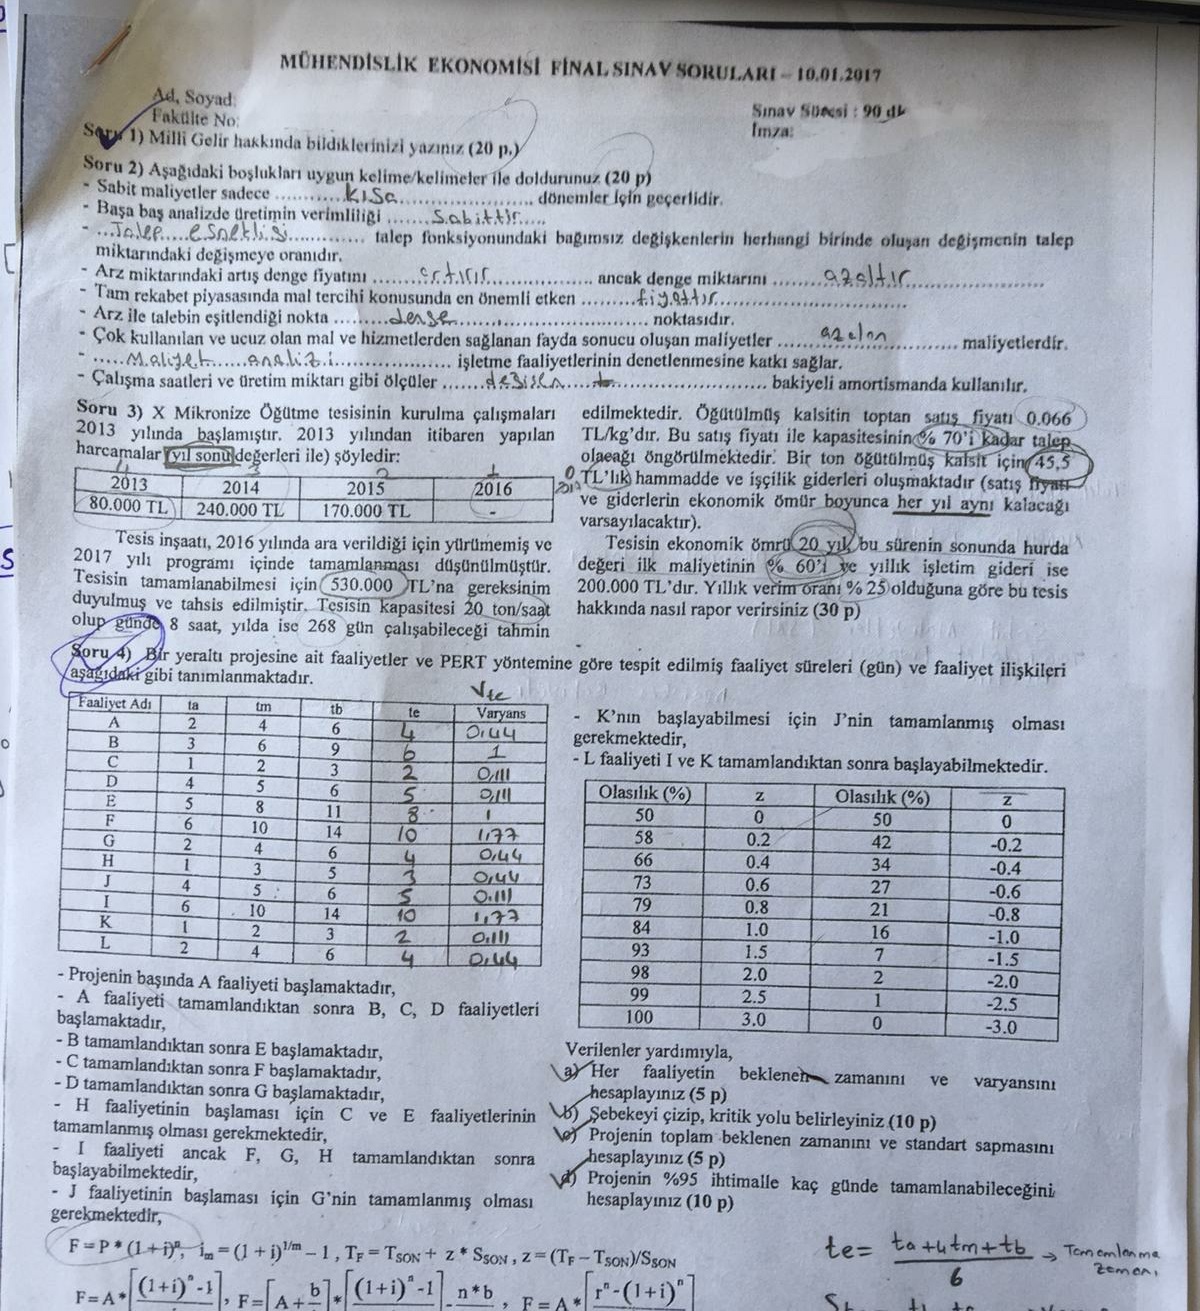 MÜHENDİSLİK EKONOMİSİ FİNAL SINAV SORULARI – 10.01.2017
Ad, Soyad:
Fakülte No:
Sınav Süresi : 90 dk
İmza:
Soru 1) Milli Gelir hakkında bildiklerinizi yazınız (20 p.)
Soru 2) Aşağıdaki boşlukları uygun kelime/kelimeler ile doldurunuz (20 p)
- Sabit maliyetler sadece ...........kısa................... dönemler için geçerlidir.
- Başa baş analizde üretimin verimliliği .......sabittir.....
- ...Talep....esnekliği............ talep fonksiyonundaki bağımsız değişkenlerin herhangi birinde oluşan değişmenin talep
miktarındaki değişmeye oranıdır.
- Arz miktarındaki artış denge fiyatını ........artırır............... ancak denge miktarını ........azaltır.....................
- Tam rekabet piyasasında mal tercihi konusunda en önemli etken .........fiyattır............................
- Arz ile talebin eşitlendiği nokta .........denge......................... noktasıdır.
- Çok kullanılan ve ucuz olan mal ve hizmetlerden sağlanan fayda sonucu oluşan maliyetler ......azalan............ maliyetlerdir.
- .....Maliyet.....analizi................ işletme faaliyetlerinin denetlenmesine katkı sağlar.
- Çalışma saatleri ve üretim miktarı gibi ölçüler .......değişen............................ bakiyeli amortismanda kullanılır.
Soru 3) X Mikronize Öğütme tesisinin kurulma çalışmaları
2013 yılında başlamıştır. 2013 yılından itibaren yapılan
harcamalar (yıl sonu değerleri ile) şöyledir:
4 3 2 1 0
2013 2014 2015 2016
80.000 TL 240.000 TL 170.000 TL -
Tesis inşaatı, 2016 yılında ara verildiği için yürümemiş ve
2017 yılı programı içinde tamamlanması düşünülmüştür.
Tesisin tamamlanabilmesi için 530.000 TL'na gereksinim
duyulmuş ve tahsis edilmiştir. Tesisin kapasitesi 20 ton/saat
olup günde 8 saat, yılda ise 268 gün çalışabileceği tahmin
edilmektedir. Öğütülmüş kalsitin toptan satış fiyatı 0.066
TL/kg'dır. Bu satış fiyatı ile kapasitesinin % 70'i kadar talep
olacağı öngörülmektedir. Bir ton öğütülmüş kalsit için 45,5
TL'lık hammadde ve işçilik giderleri oluşmaktadır (satış fiyatı
ve giderlerin ekonomik ömür boyunca her yıl aynı kalacağı
varsayılacaktır).
Tesisin ekonomik ömrü 20 yıl, bu sürenin sonunda hurda
değeri ilk maliyetinin % 60'i ve yıllık işletim gideri ise
200.000 TL'dır. Yıllık verim oranı % 25 olduğuna göre bu tesis
hakkında nasıl rapor verirsiniz (30 p)
Soru 4) Bir yeraltı projesine ait faaliyetler ve PERT yöntemine göre tespit edilmiş faaliyet süreleri (gün) ve faaliyet ilişkileri
aşağıdaki gibi tanımlanmaktadır.
Vte
Faaliyet Adı ta tm tb te Varyans
A 2 4 6 4 0,44
B 3 6 9 6 1
C 1 2 3 2 0,111
D 4 5 6 5 0,111
E 5 8 11 8 1
F 6 10 14 10 1,77
G 2 4 6 4 0,44
H 1 3 5 3 0,44
J 4 5 6 5 0.111
I 6 10 14 10 1,77
K 1 2 3 2 0,111
L 2 4 6 4 0,44
- Projenin başında A faaliyeti başlamaktadır,
- A faaliyeti tamamlandıktan sonra B, C, D faaliyetleri
başlamaktadır,
- B tamamlandıktan sonra E başlamaktadır,
- C tamamlandıktan sonra F başlamaktadır,
- D tamamlandıktan sonra G başlamaktadır,
- H faaliyetinin başlaması için C ve E faaliyetlerinin
tamamlanmış olması gerekmektedir,
- I faaliyeti ancak F, G, H tamamlandıktan sonra
başlayabilmektedir,
- J faaliyetinin başlaması için G'nin tamamlanmış olması
gerekmektedir,
- K'nın başlayabilmesi için J'nin tamamlanmış olması
gerekmektedir,
- L faaliyeti I ve K tamamlandıktan sonra başlayabilmektedir.
Olasılık (%) z Olasılık (%) z
50 0 50 0
58 0.2 42 -0.2
66 0.4 34 -0.4
73 0.6 27 -0.6
79 0.8 21 -0.8
84 1.0 16 -1.0
93 1.5 7 -1.5
98 2.0 2 -2.0
99 2.5 1 -2.5
100 3.0 0 -3.0
Verilenler yardımıyla,
a) Her faaliyetin beklenen zamanını ve varyansını
hesaplayınız (5 p)
b) Şebekeyi çizip, kritik yolu belirleyiniz (10 p)
c) Projenin toplam beklenen zamanını ve standart sapmasını
hesaplayınız (5 p)
d) Projenin %95 ihtimalle kaç günde tamamlanabileceğini
hesaplayınız (10 p)
F=P*(1+i)ⁿ, iₘ=(1+i)^1/m – 1, TF = TSON + z * SSON, z = (TF – TSON)/SSON
te= ta+4tm+tb / 6 → Tamamlanma zamanı
F=A*[(1+i)ⁿ-1], F=[A+b]*[(1+i)ⁿ-1] n*b, F=A*[rⁿ-(1+i)ⁿ]